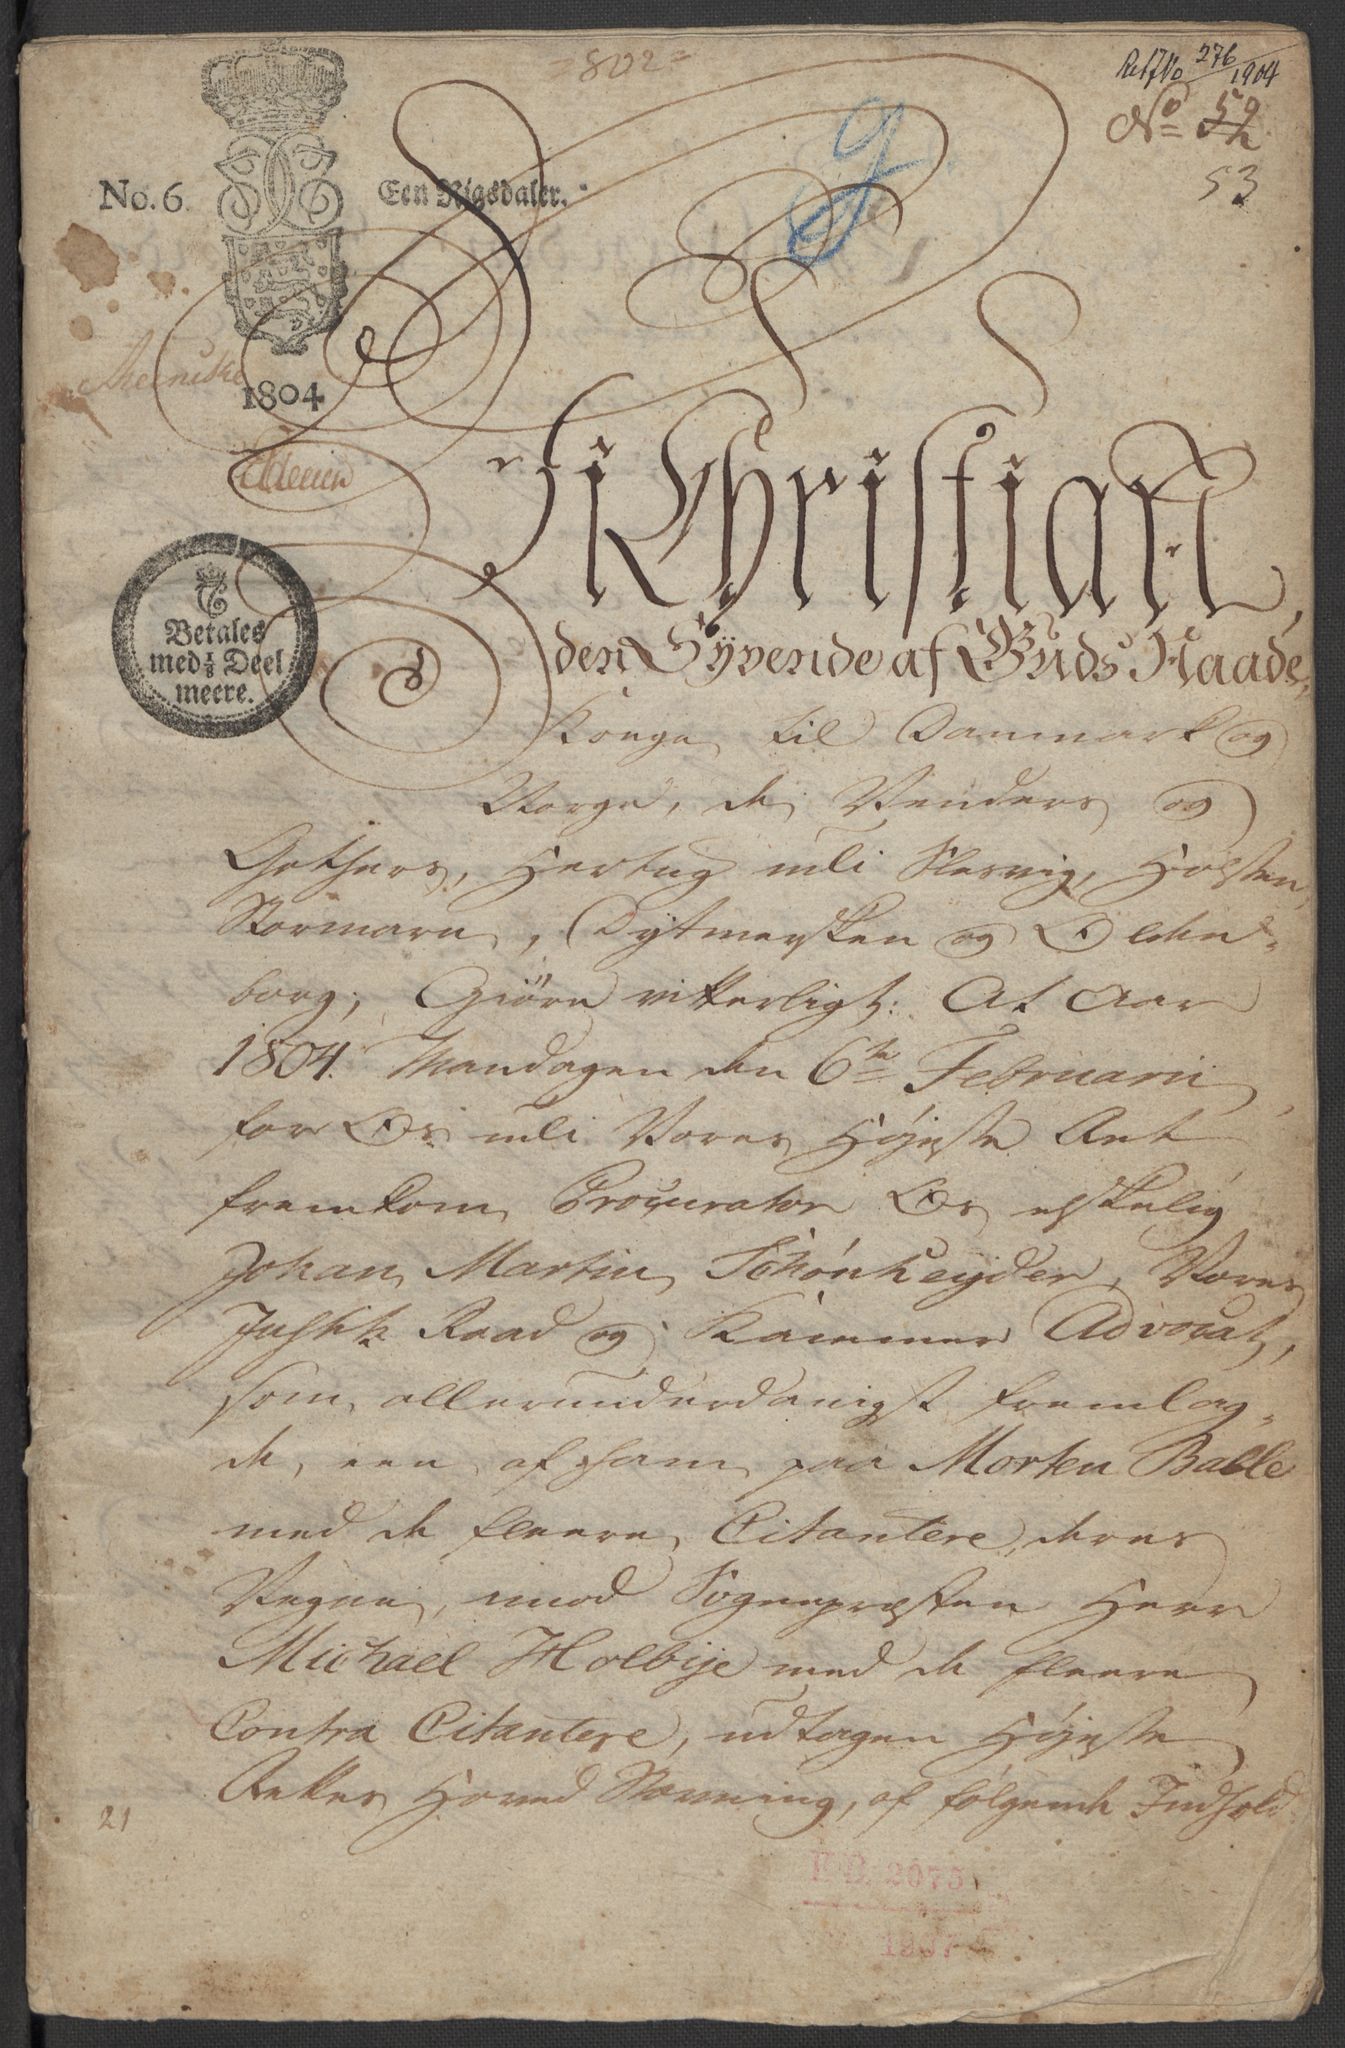 =802=
Ref No 276/1904
No 52
53
No. 6.
Een Rigsdaler.
1804
Betales
med ½ Deel
meere.
Vi Christian
den Syvende af Guds Naade,
Konge til Danmark og
Norge, de Venders og
Gothers, Hertug udi Slesvig, Holsten,
Stormarn, Dytmersken og Olden-
borg; Giöre vitterligt: At Aar
1804. Mandagen den 6te Februarii
for Os udi Vores Høyeste Ret
fremkom Procurator Os elskelig
Johan Martin Schönheyder, Vores
Justitz Raad og Kammer Advocat,
som allerunderdanigst fremlag-
de, een af ham paa Morten Balle
med de fleere Citantere, deres
Vegne, imod Sognepræsten Herr
Michael Holbije med de fleere
Contra Citantere, udtagen Høyeste
Rettes Hoved Stævning, af følgende Indhold
21
2075
1907